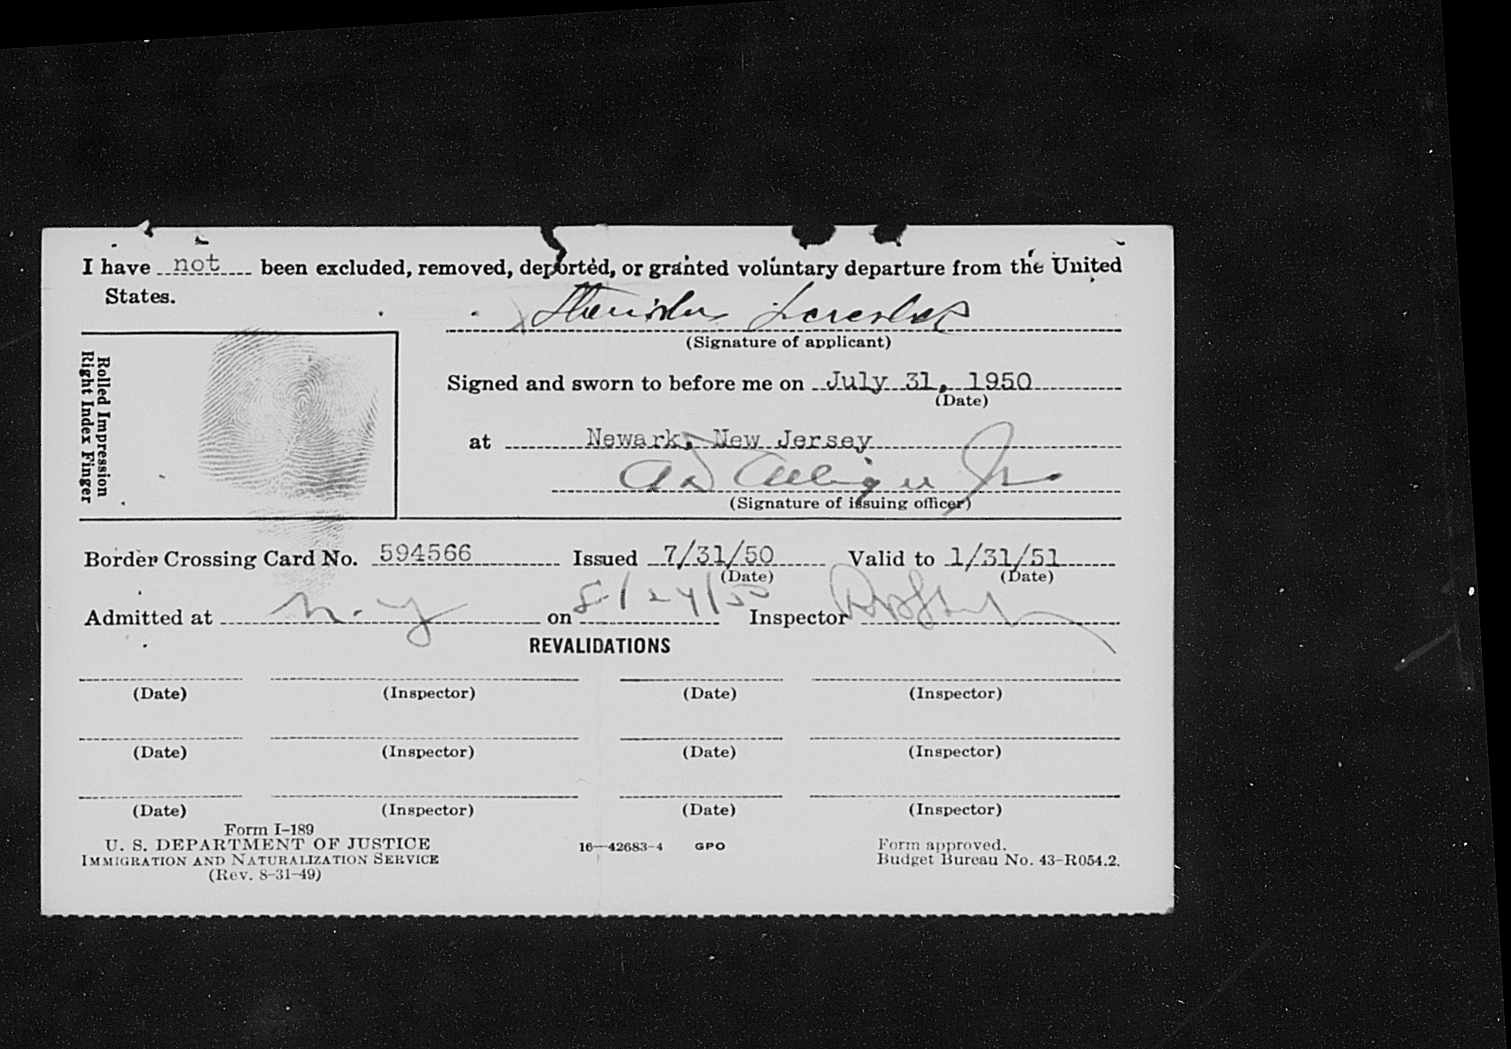 I have not been excluded, removed, deported, or granted voluntary departure from the United
States.
(Signature of applicant)
Rolled Impression
Right Index Finger
Signed and sworn to before me on July 31, 1950
(Date)
at Newark, New Jersey
(Signature of issuing officer)
Border Crossing Card No. 594566 Issued 7/31/50 Valid to 1/31/51
(Date) (Date)
Admitted at N.Y on 8/24/50 Inspector
REVALIDATIONS
(Date) (Inspector) (Date) (Inspector)
(Date) (Inspector) (Date) (Inspector)
(Date) (Inspector) (Date) (Inspector)
Form I-189
U. S. DEPARTMENT OF JUSTICE
IMMIGRATION AND NATURALIZATION SERVICE
(Rev. 8-31-49)
16—42683-4 GPO
Form approved.
Budget Bureau No. 43-R054.2.